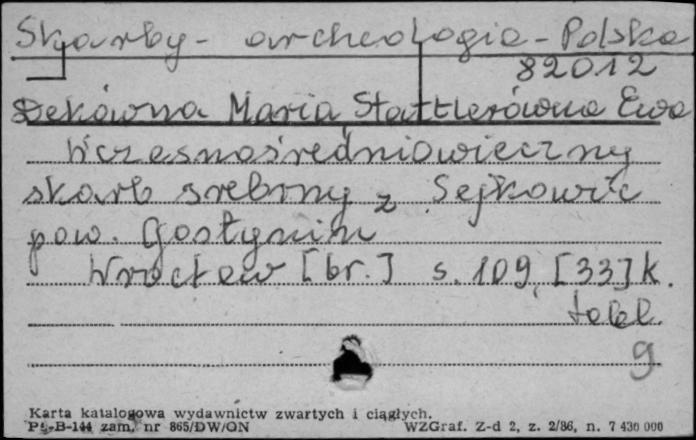 Skarby - archeologia - Polska
82012
Dekówna Maria Stattlerówna Ewa
Wczesnośredniowieczny
skarb srebrny z Sejkowic
pow. Gostynin
Wrocław [br.] s. 109, [33] k.
tabl.
9
Karta katalogowa wydawnictw zwartych i ciągłych.
Pt-B-144 zam. nr 865/DW/ON WZGraf. Z-d 2, z. 2/86, n. 7 430 000